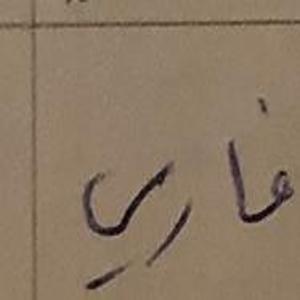 غاري